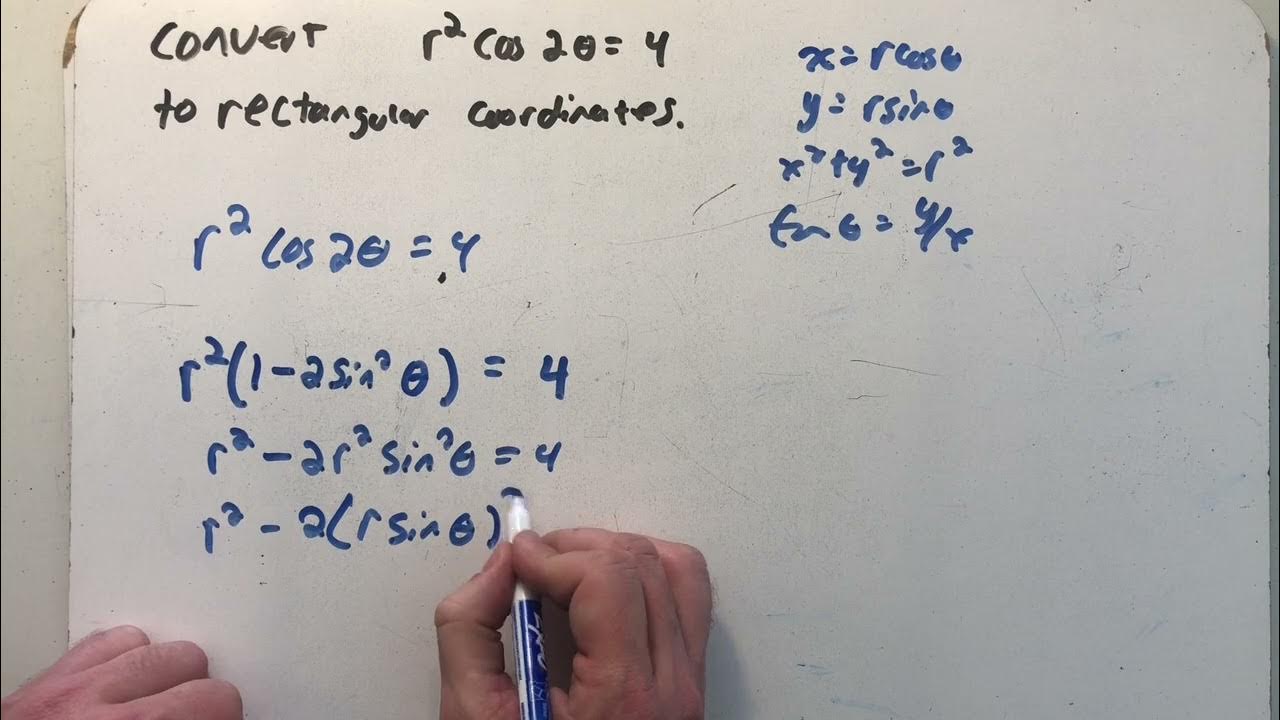 convert r² cos 2θ = 4
to rectangular coordinates.
x = r cosθ
y = r sinθ
x² + y² = r²
tan θ = y/x
r² cos 2θ = 4
r²(1 - 2 sin² θ) = 4
r² - 2r² sin² θ = 4
r² - 2(r sin θ)²
EXPO